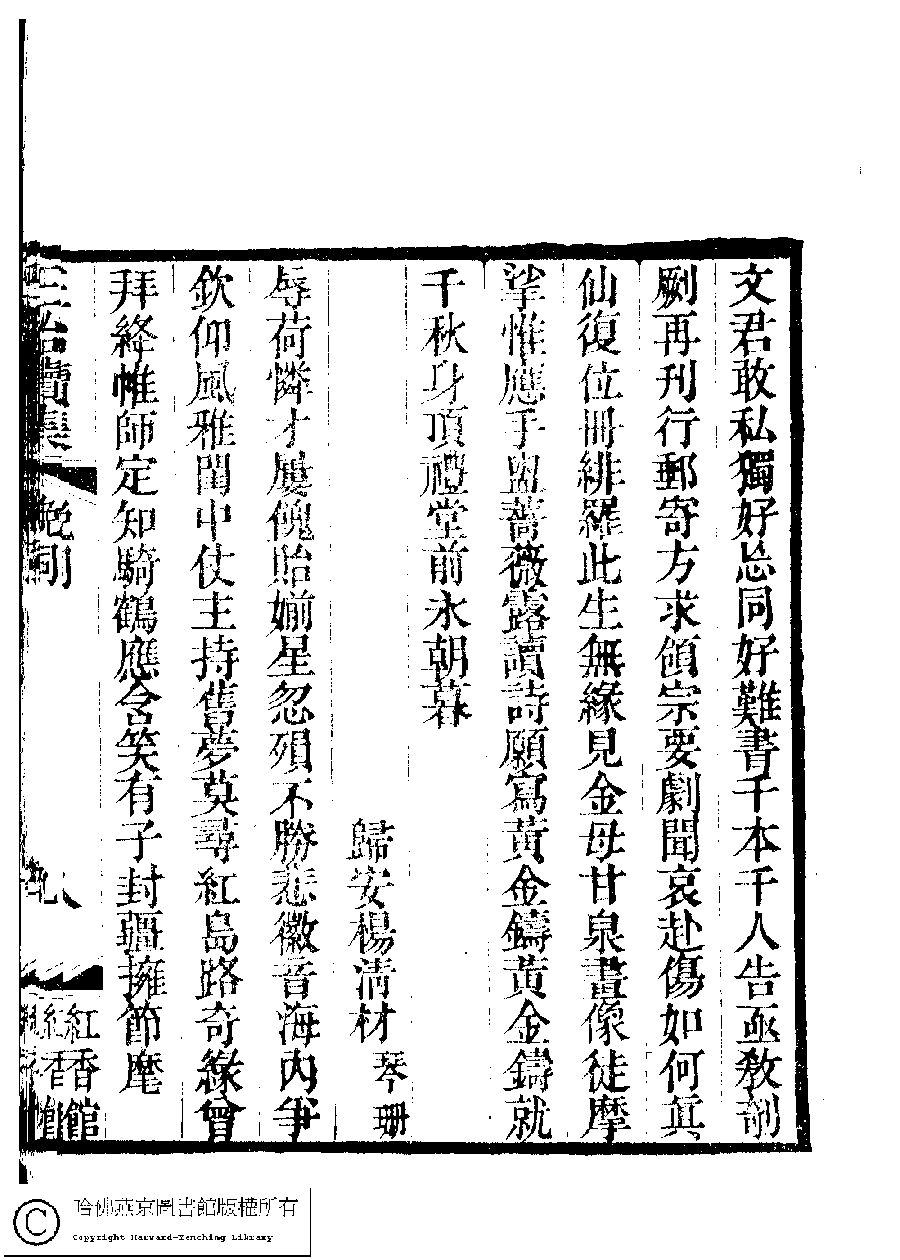 文君敢私獨好忘同好難書千本千人告亟敎剞
劂再刊行郵寄方求領宗要劇聞哀赴傷如何眞
仙復位冊緋羅此生無緣見金母甘泉畫像徒摩
挲惟應手盥薔薇露讀詩願寫黃金鑄黃金鑄就
千秋身頂禮堂前永朝暮
歸安楊清材 琴珊
辱荷憐才屢傀貽婣星忽殞不勝悲徽音海內爭
欽仰風雅閨中仗主持舊夢莫尋紅島路奇緣曾
拜絳帷師定知騎鶴應含笑有子封疆擁節麾
紅香館
哈佛燕京圖書館版權所有
Copyright Harvard-Yenching Library